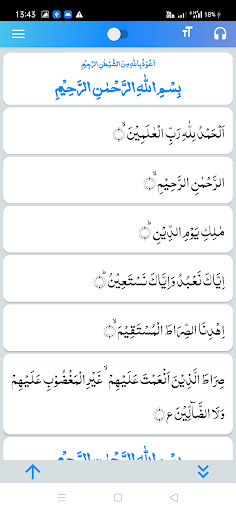 13:43
18%
اَعُوْذُ بِاللّٰهِ مِنَ الشَّيْطٰنِ الرَّجِيْمِ
بِسْمِ اللّٰهِ الرَّحْمٰنِ الرَّحِيْمِ
اَلْحَمْدُ لِلّٰهِ رَبِّ الْعٰلَمِيْنَ ۙ
الرَّحْمٰنِ الرَّحِيْمِ ۙ
مٰلِكِ يَوْمِ الدِّيْنِ ؕ
اِيَّاكَ نَعْبُدُ وَاِيَّاكَ نَسْتَعِيْنُ ؕ
اِهْدِنَا الصِّرَاطَ الْمُسْتَقِيْمَ ۙ
صِرَاطَ الَّذِيْنَ اَنْعَمْتَ عَلَيْهِمْ ۙ غَيْرِ الْمَغْضُوْبِ عَلَيْهِمْ
وَلَا الضَّآلِّيْنَ ع
بِسْمِ اللّٰهِ الرَّحْمٰنِ الرَّحِيْمِ